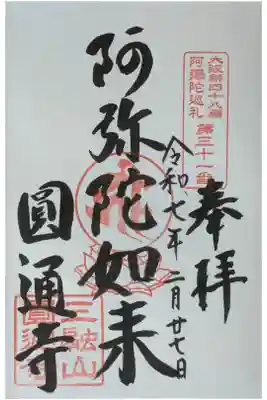 大阪新四十八願
阿彌陀巡礼 第三十一番
奉拝
令和七年二月廿七日
阿弥陀如来
圓通寺
三融山
圓通寺